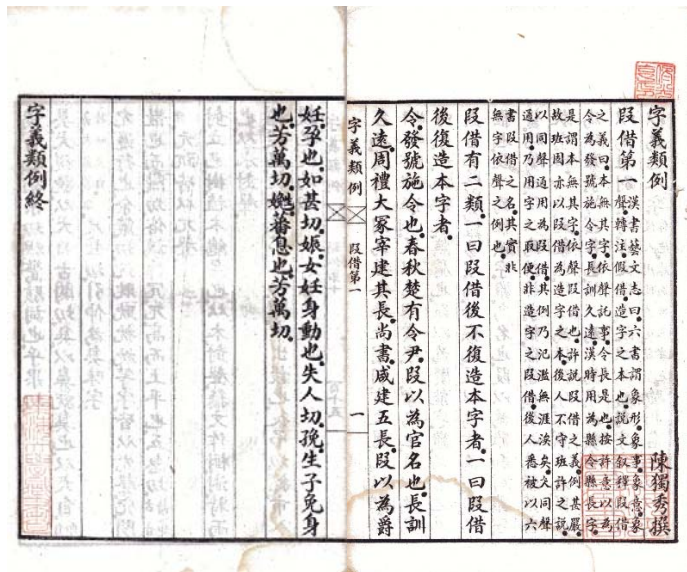 字義類例 陳獨秀撰
叚借第一
漢書藝文志曰。六書謂象形。象事。象意。象
聲。轉注。假借。造字之本也。說文叙釋叚借
之義曰。本無其字。依聲託事。令長是也。按許意以為
令為發號施令字。長訓久遠。漢時用為縣令縣長字。
是謂本無其字。依聲叚借也。許說叚借之義例甚嚴。
故班固亦以叚借為造字之本。後人不守班許之說。
以同聲通用為叚借。其例乃氾濫無涯涘矣。文同聲
通用。乃用字之取便。非造字之叚借。後人悉被以六
書叚借之名。其實非
無字依聲之例也。
叚借有二類。一曰叚借後不復造本字者。一曰叚借
後復造本字者。
令。發號施令也。春秋楚有令尹。叚以為官名也。長訓
久遠。周禮大冢宰建其長。尚書咸建五長。叚以為爵
字義類例 叚借第一 一
妊。孕也。如甚切。娠。女妊身動也。失人切。娩。生子免身
也。芳萬切。嬎。蕃息也。芳萬切。
字義類例終